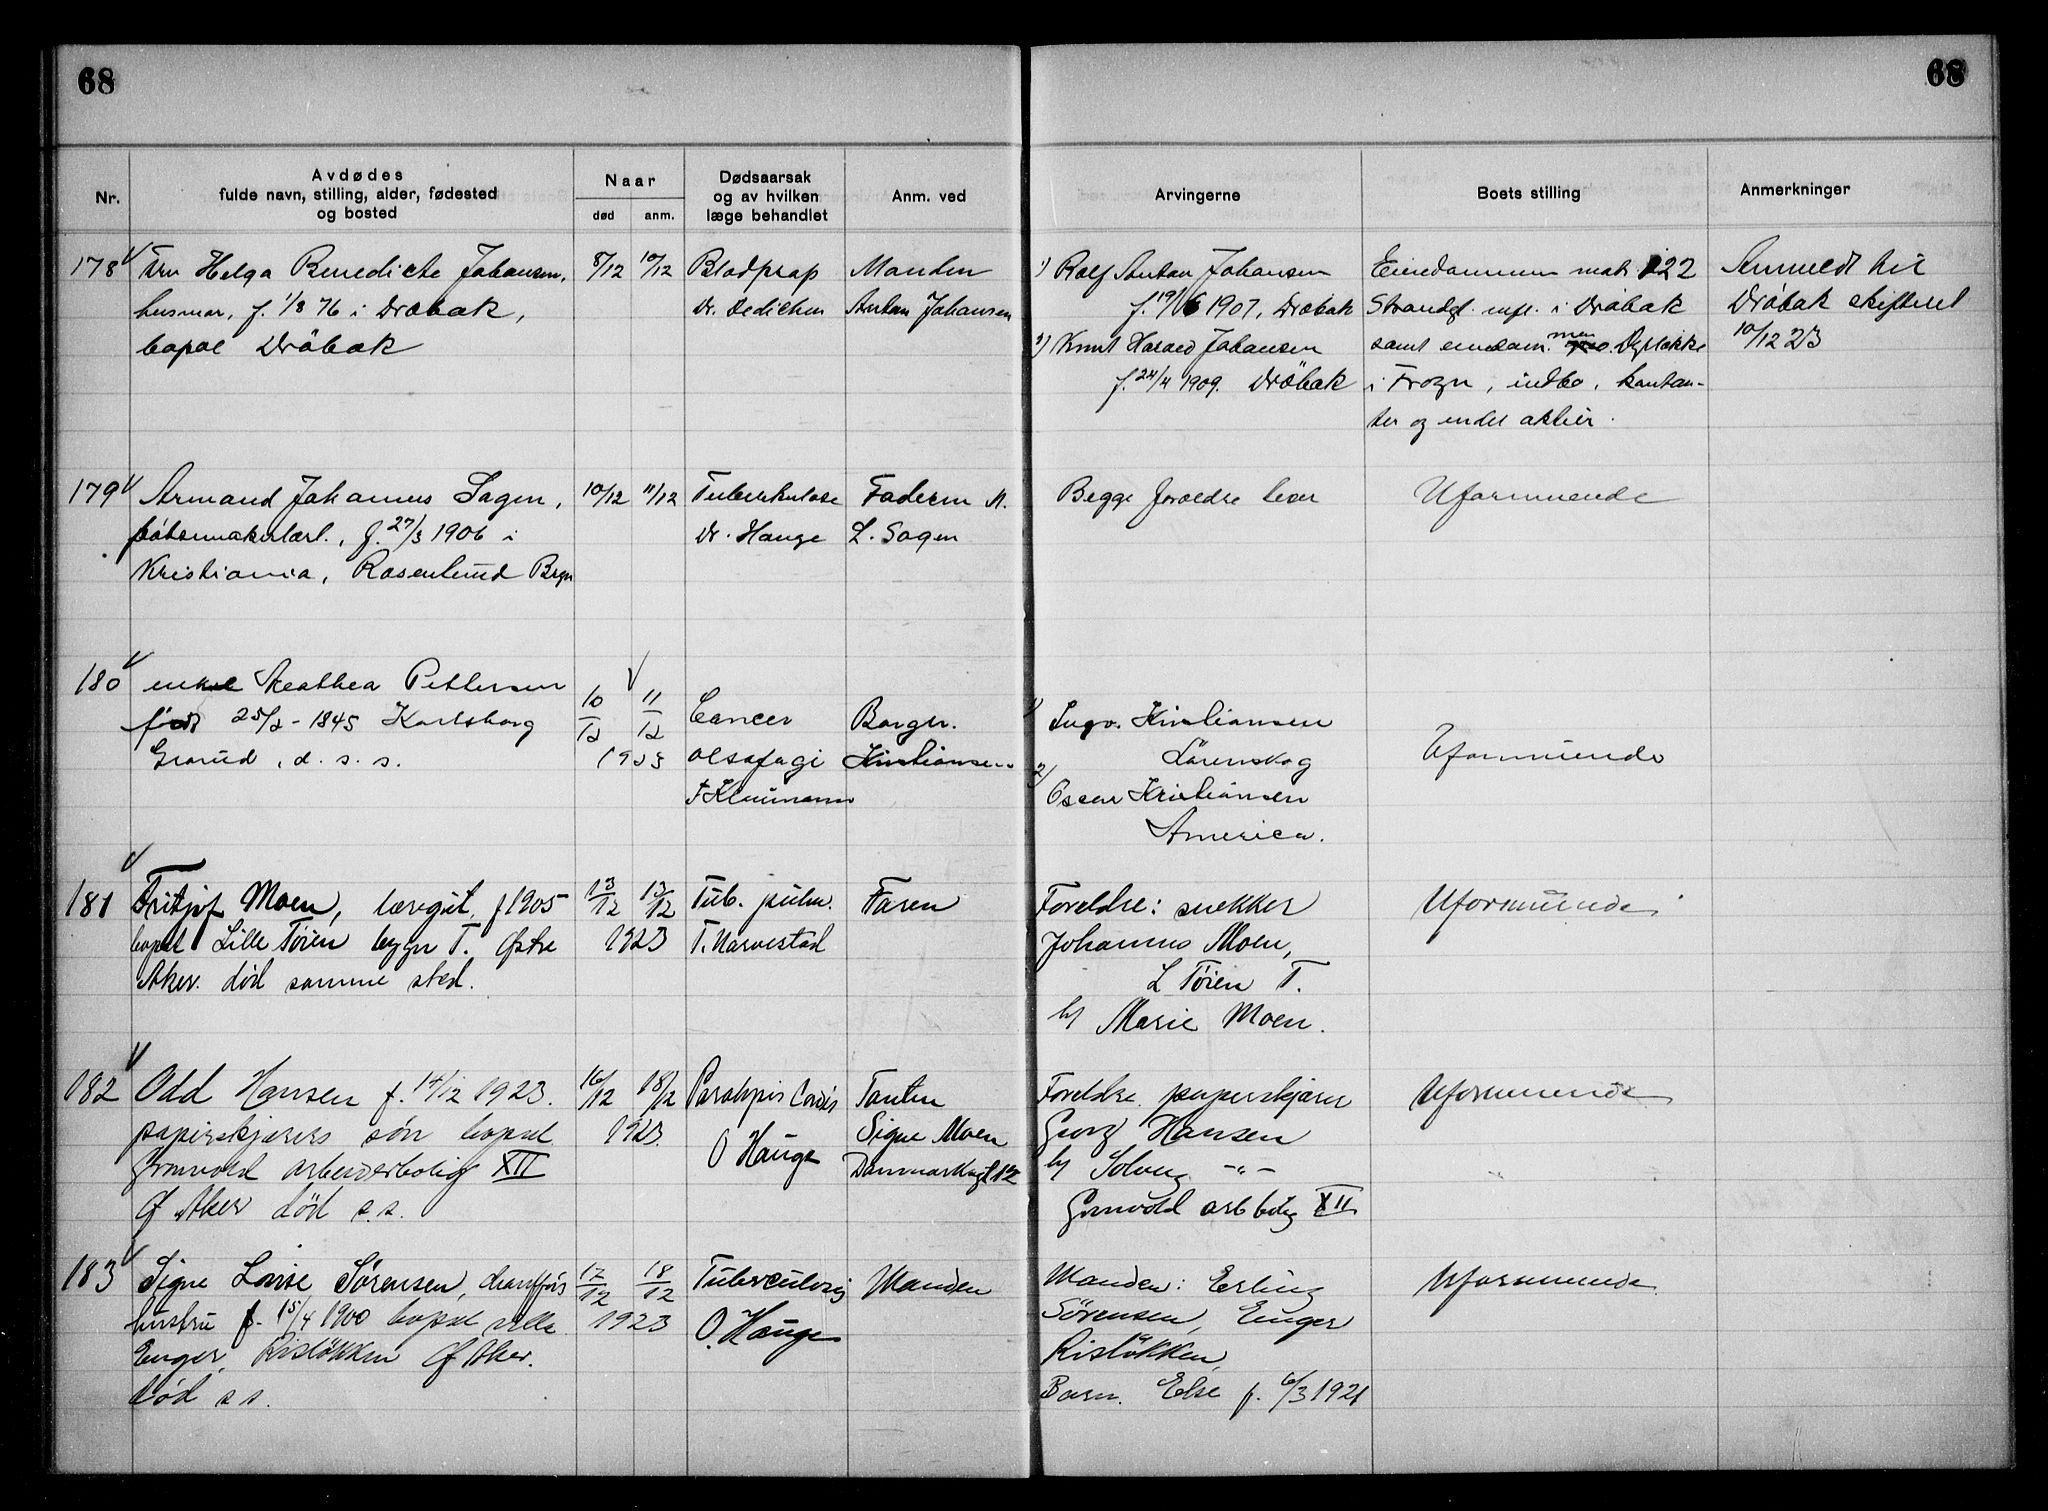 68
68
Nr.
Avdødes
fulde navn, stilling, alder, fødested
og bosted
Naar
død
anm.
Dødsaarsak
og av hvilken
læge behandlet
Anm. ved
Arvingerne
Boets stilling
Anmerkninger
178 Fru Helga Benedicte Johansen, 8/12 10/12 Blodprop Manden
husmor, f. 1/8 76 i Drøbak, Dr. Dedichen Anton Johansen
bopæl Drøbak
1) Rolf Anton Johansen
f. 19/6 1907, Drøbak
2) Knut Harald Johansen
f. 24/4 1909. Drøbak
Eiendommen mat 122
Strandgt. i Drøbak
samt eiendom. Dyrløkke
i Frogn, indbo, kontan-
ter og endel aktier.
Anmeldt til
Drøbak skifteret
10/12 23
179 Armand Johannes Sagen, 10/12 11/12 Tuberkulose Faderen M.
f. 27/3 1906 i Dr. Hauge L. Sagen
Kristiania, Rosenlund Bryn
Begge foreldre lever
Uformuende
180 enke Pettersen 10/12 11/12
født 25/2 - 1845 Karlsborg Cancer Borger.
Grorud, d. s. s. 1923 oesofagi Kristiansen
1) Ingv. Kristiansen
Lørenskog
2) Oscar Kristiansen
America.
Uformuende
181 Fritjof Moen, læregut, f 1905 13/12 13/12 Tub. pulm. Faren
bopæl Lille Tøien bygn T. Østre 1923 T. Narvestad
Aker. død samme sted.
Foreldre: snekker
Johannes Moen,
L Tøien T.
h/ Marie Moen.
Uformuende
182 Odd Hansen f. 14/12 1923. 16/12 18/12 Paralysis Cordis Tanten
papirskjærers søn bopæl 1923. O Hauge Signe Moen
Grønvold arbeiderbolig XII Danmarksgt 12
Ø Aker død s.s.
Foreldre papirskjærer
Georg Hansen
h/ Solveig -"-
Grønvold arb bolig XII
Uformuende
183 Signe Lovise Sørensen, chaufførs 17/12 18/12 Tuberculosis Manden
hustru f. 15/4 1900 bopæl villa 1923 O. Hauge
Enger, Risløkken Ø Aker.
død s s.
Manden: Erling
Sørensen, Enger
Risløkken,
Barn. Else f. 6/3 1921
Uformuende